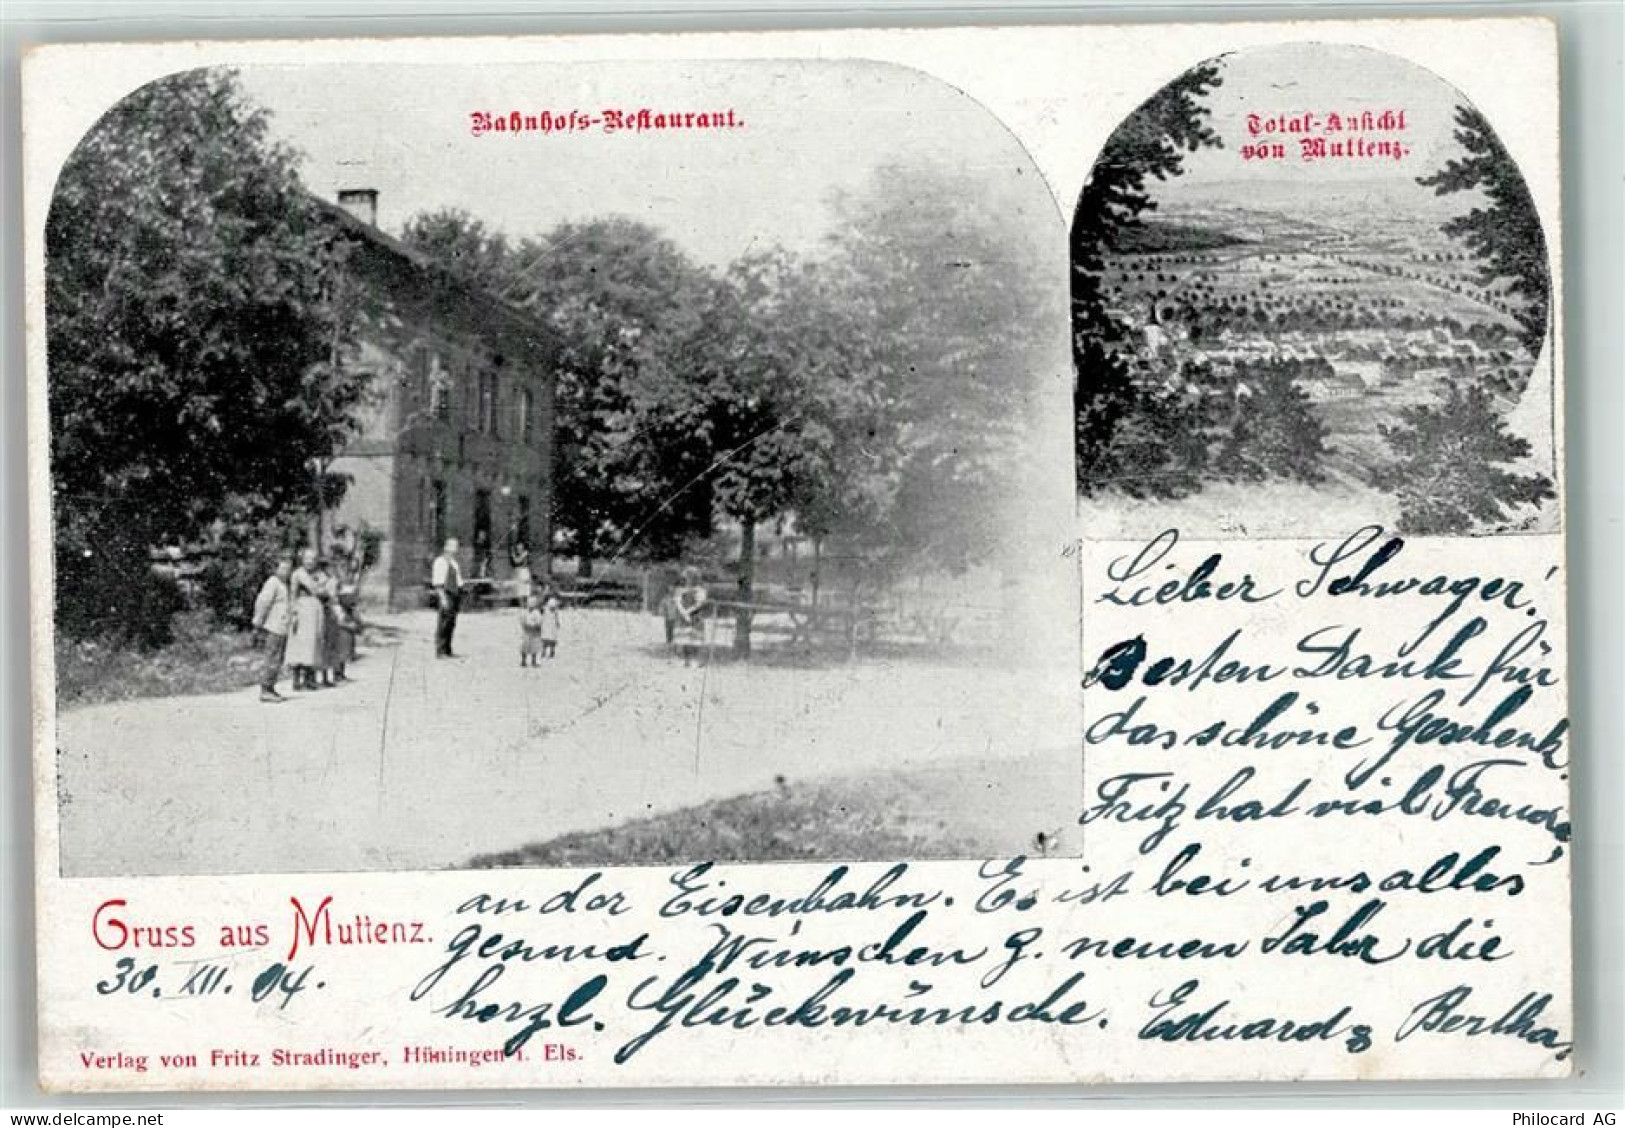 Bahnhofs-Restaurant.
Total-Ansicht
von Muttenz.
Lieber Schwager!
Besten Dank für
das schöne Geschenk.
Fritz hat viel Freude,
an der Eisenbahn. Es ist bei uns alles
gesund. Wünschen z. neuen Jahr die
herzl. Glückwünsche. Eduard & Bertha.
Gruss aus Muttenz.
30. XII. 04.
Verlag von Fritz Stradinger, Hüningen i. Els.
delcampe.net
Philocard AG